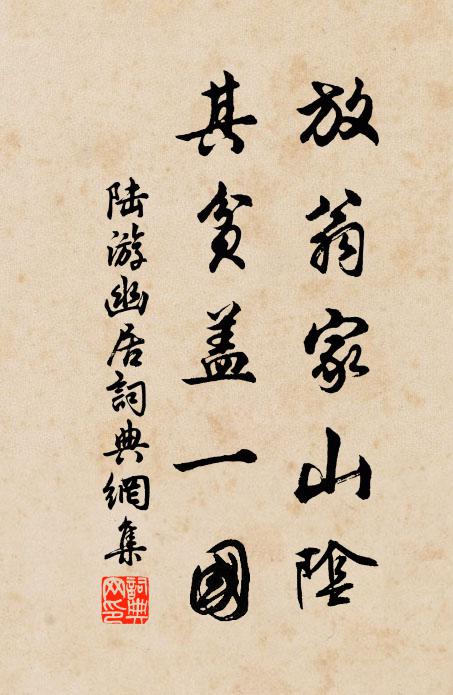 放翁家山陰
其貧蓋一國
陸游幽居詞典網集
詞典網印